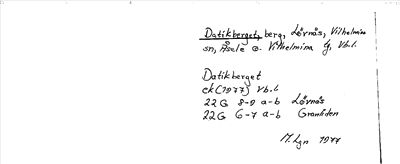 Datikberget, berg, Lövnäs, Vilhelmina
sn, Åsele o. Vilhelmina lg, Vb.l.
Datikberget
ek (1977) Vb.l.
22G 8-9 a-b Lövnäs
22G 6-7 a-b Granåsen
M. Lgn 1977